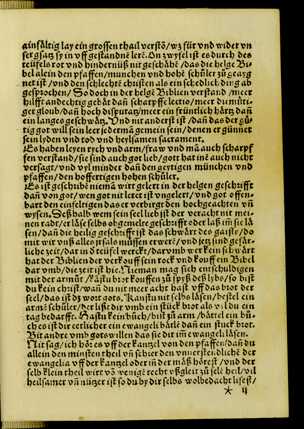 ainfältig lay ein grossen thail verstō/ wz für vnd wider vn
ser gsatz sy in vff gestandne lerē. On zwyfel ist es durch des
teüfels rot vnd hindernüß nit geschåhē/ das die helge Bi-
bel alein den pfaffen/ munchen vnd hohē schůler zů geaig
net ist/ vnd den schlechtē christen als ein schedlich ding ab
gesprochen/ So doch in der helgē Biblien verstand/ meer
hilfft andechtig gebåt dañ scharpffe lectio/ meer demitti-
ger gloub/ dañ hoch disputatz/ meer ein früntlich hårtz dañ
ein langes geschwåtz. Vnd nit anderst ist/ dañ das der gü-
tig got will sein leer jedermā gemein sein/ denen er günnet
sein lyden vnd tod vnd heilsamen sacrament.
Es haben leyen rich vnd arm/ fraw vnd mā auch scharpf
fen verstand/ sie sind auch got lieb/ gott hat inē auch nicht
versagt/ vnd vyl minder dañ den gytigen münchen vnd
pfaffen/ den hoffertigen hohen schůler.
Es ist geschribē niemā wirt gelert in der helgen geschrifft
dañ von got/ wen got nit leret ist vngelert/ vnd got offen-
bart den einfeltigen das er verbirget den hochgeachten vñ
wysen. Deßhalb wem sein seel lieb ist der veracht nit mei-
nen radt/ er låse selbs obgemelte geschrifft oder laß im sie lå
sen/ dañ die heilig geschrifft ist das schwårt des gaists/ da
mit wir vnß alles yrsals müssen erwerē/ vnd jetz sind gefår-
liche zeit/ dar in d teüfel wercket/ darumb wer kein schwårt
hat der Bibel der verkouff sein rock vnd kouff ein Bibel
dar vmb/ die zeit ist hie. Nieman mag sich entschuldigen
mit der armůt/ Kastu brot kouffen zů spyß deß lybs/ so bist
du kein christ/ wañ du nit meer acht hast vff das brot der
seel/ das ist dz wort gots. Kanstu nit selbs låsen/ bestell ein
armē schůler/ der lißt dir vmb ein stuck brot als vil du ein
tag bedarfft. Hastu kein bůch/ bist zů arm/ båttel ein bů-
ch es ist dir eerlicher ein ewangeli båtlē dañ ein stuck brot.
Bit ander vmb gots willen das sie dir im ewangeli låsen.
Nit sag/ ich hör es vff der kantzel von den pfaffen/ dañ du
allein den minsten theil
ewangelia vff der kantzel oder in der måß hörest/ vnd der
selb klein theil wirt vō wenigē recht vßgleit zů selē heil/ vil
heilsamer vñ nützer ist so du by dir selbs wolbedacht lisest/
* ij